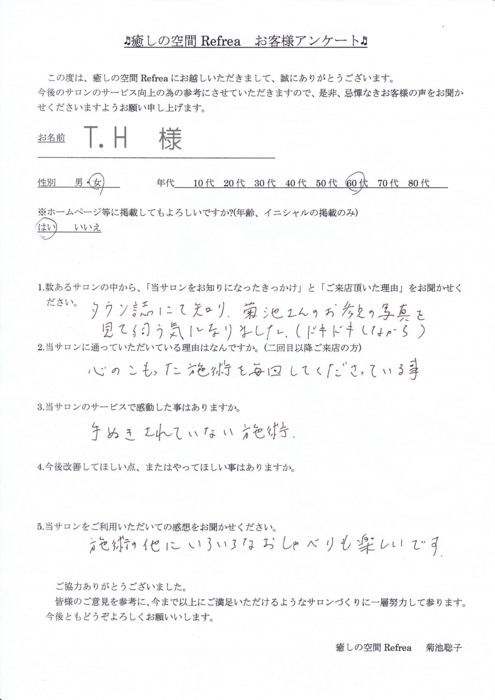 ♫癒しの空間 Refrea　お客様アンケート♫
この度は、癒しの空間 Refrea にお越しいただきまして、誠にありがとうございます。
今後のサロンのサービス向上の為の参考にさせていただきますので、是非、忌憚なきお客様の声をお聞か
せくださいますようお願い申し上げます。
お名前　T.H 様
性別　男・女　年代　10代　20代　30代　40代　50代　60代　70代　80代
※ホームページ等に掲載してもよろしいですか?(年齢、イニシャルの掲載のみ)
はい　いいえ
1.数あるサロンの中から、「当サロンをお知りになったきっかけ」と「ご来店頂いた理由」をお聞かせく
ださい。タウン誌にて知り、菊池さんのお姿の写真を
見て伺う気になりました。(ドキドキしながら)
2.当サロンに通っていただいている理由はなんですか。(二回目以降ご来店の方)
心のこもった施術を毎回してくださっている事
3.当サロンのサービスで感動した事はありますか。
手ぬきされていない施術.
4.今後改善してほしい点、またはやってほしい事はありますか。
5.当サロンをご利用いただいての感想をお聞かせください。
施術の他にいろいろなおしゃべりも楽しいです.
ご協力ありがとうございました。
皆様のご意見を参考に、今まで以上にご満足いただけるようなサロンづくりに一層努力して参ります。
今後ともどうぞよろしくお願いいします。
癒しの空間 Refrea　菊池聡子